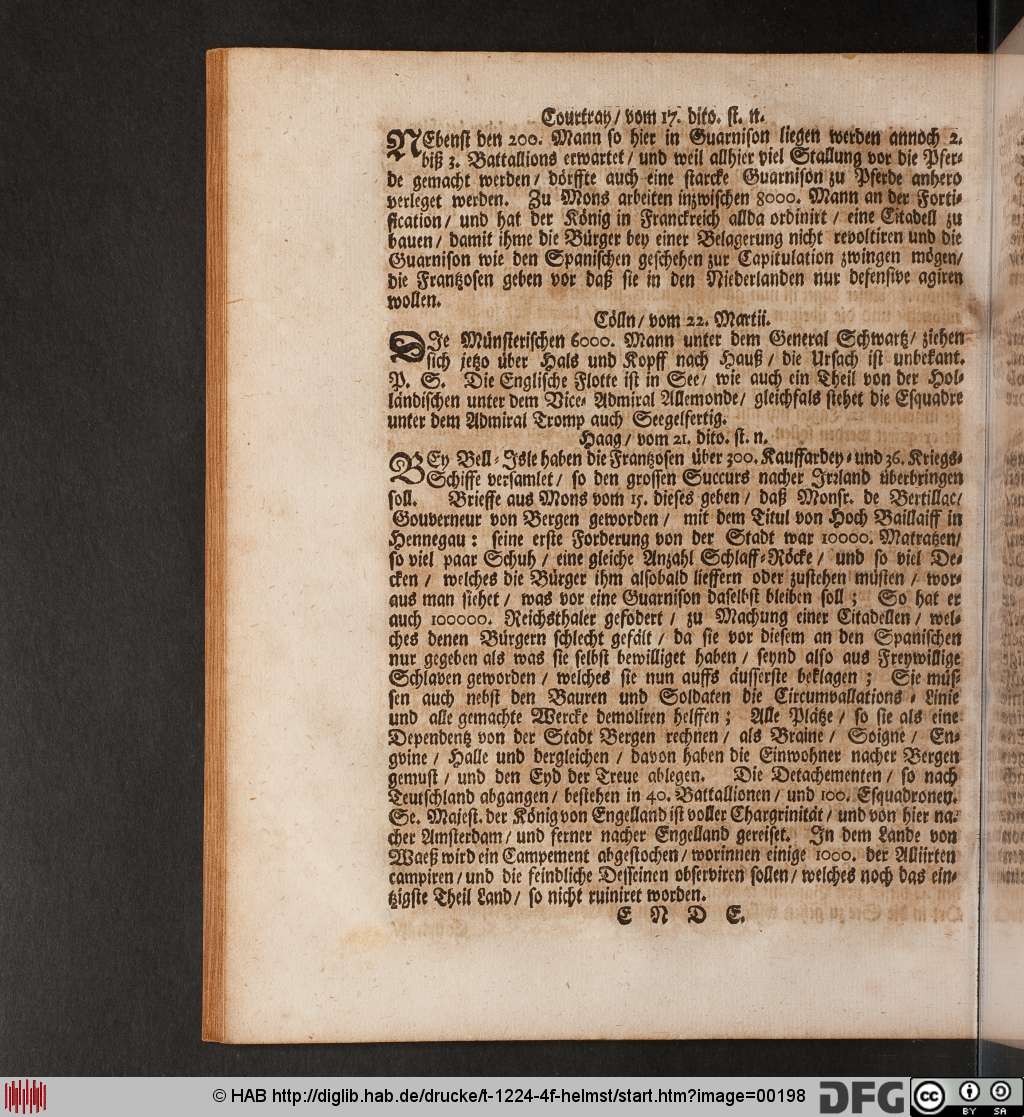 Courtray / vom 17. dito. st. n.
NEbenst den 200. Mann so hier in Guarnison liegen werden annoch 2.
biß 3. Battallions erwartet / und weil allhier viel Stallung vor die Pfer-
de gemacht werden / dörffte auch eine starcke Guarnison zu Pferde anhero
verleget werden. Zu Mons arbeiten inzwischen 8000. Mann an der Forti-
fication / und hat der König in Franckreich allda ordinirt / eine Citadell zu
bauen / damit ihme die Bürger bey einer Belagerung nicht revoltiren und die
Guarnison wie den Spanischen geschehen zur Capitulation zwingen mögen /
die Frantzosen geben vor daß sie in den Niederlanden nur defensive agiren
wollen.
Cölln / vom 22. Martii.
DIe Münsterischen 6000. Mann unter dem General Schwartz / ziehen
sich jetzo über Hals und Kopff nach Hauß / die Ursach ist unbekant.
P. S. Die Englische Flotte ist in See / wie auch ein Theil von der Hol-
ländischen unter dem Vice- Admiral Allemonde / gleichfals stehet die Esquadre
unter dem Admiral Tromp auch Seegelfertig.
Haag / vom 21. dito. st. n.
BEy Bell-Isle haben die Frantzosen über 300. Kauffardey- und 36. Kriegs-
Schiffe versamlet / so den grossen Succurs nacher Irrland überbringen
soll. Brieffe aus Mons vom 15. dieses geben / daß Monsr. de Bertillac /
Gouverneur von Bergen geworden / mit dem Titul von Hoch Baillaiff in
Hennegau : seine erste Forderung von der Stadt war 10000. Matratzen /
so viel paar Schuh / eine gleiche Anzahl Schlaff-Röcke / und so viel De-
cken / welches die Bürger ihm alsobald lieffern oder zustehen müsten / wor-
aus man siehet / was vor eine Guarnison daselbst bleiben soll ; So hat er
auch 100000. Reichsthaler gefodert / zu Machung einer Citadellen / wel-
ches denen Bürgern schlecht gefält / da sie vor diesem an den Spanischen
nur gegeben als was sie selbst bewilliget haben / seynd also aus Freywillige
Schlaven geworden / welches sie nun auffs äusserste beklagen ; Sie müs-
sen auch nebst den Bauren und Soldaten die Circumvallations - Linie
und alle gemachte Wercke demoliren helffen ; Alle Plätze / so sie als eine
Dependentz von der Stadt Bergen rechnen / als Braine / Soigne / En-
gvine / Halle und dergleichen / davon haben die Einwohner nacher Bergen
gemust / und den Eyd der Treue ablegen. Die Detachementen / so nach
Teutschland abgangen / bestehen in 40. Battallionen / und 100. Esquadronen.
Se. Majest. der König von Engelland ist voller Chargrinität / und von hier na-
cher Amsterdam / und ferner nacher Engelland gereiset. In dem Lande von
Waeß wird ein Campement abgestochen / worinnen einige 1000. der Alliirten
campiren / und die feindliche Desseinen observiren sollen / welches noch das ein-
tzigste Theil Land / so nicht ruiniret worden.
E N D E.
© HAB http://diglib.hab.de/drucke/t-1224-4f-helmst/start.htm?image=00198
DFG
cc
BY SA